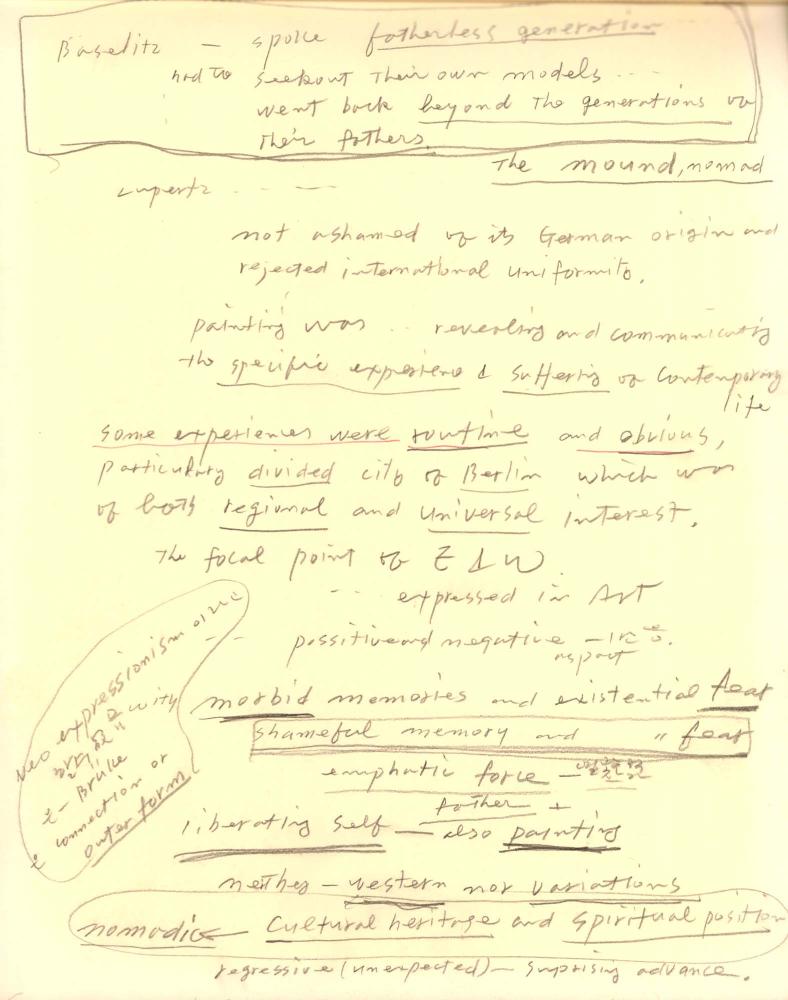 Baselitz — spoke fatherless generation
had to seekout Their own models ...
went back beyond The generations of
Their fathers.
The mound, nomad
Lupertz . . . —
not ashamed of its German origin and
rejected international uniformity.
painting was .. revealing and communicating
the specific experience & suffering of contemporary
life
some experiences were routine and obvious,
particulary divided city of Berlin which was
of both regional and universal interest.
The focal point of E & W
-- expressed in Art
-- possitive and negative
aspect
morbid memories and existential fear
shameful memory and " fear
emphatic force —
father +
liberating self — also painting
neither — western nor variations
nomadic — cultural heritage and spiritual position
regressive (unexpected) — surprising advance.
Neo expressionism
with
Brüke
connection or
outer form